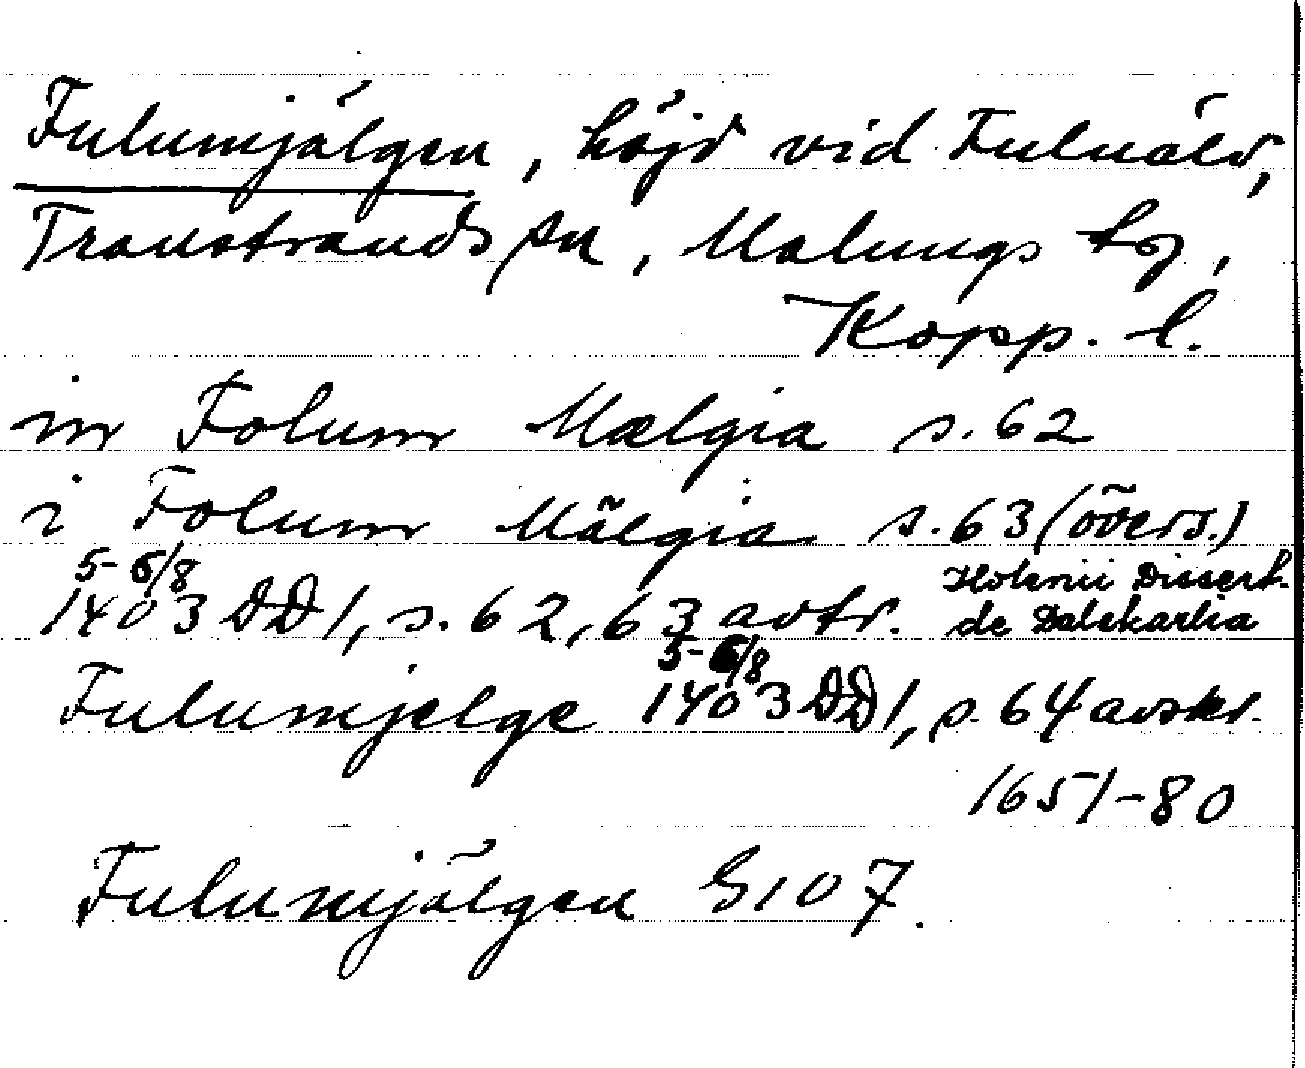 Fulumjälgen, höjd vid Fuluälv,
Transtrands sn, Malungs tg,
Kopp. l.
in Folum Mælgia s. 62
i Folum Mälgia s. 63 (övers.)
5-6/8
1403 DD 1, s. 62, 63 avtr. Holenii Dissert. de Dalekarlia
5-6/8
Fulumjelge 1403 DD 1, s. 64 avskr.
1651-80
Fulumjälgen G 107.